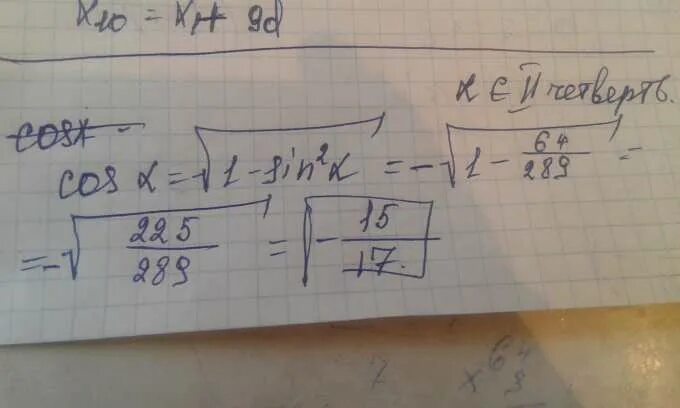 x₁₀ = x₁ + 9d
α ∈ II четверть.
cosα -
cos α = √(1 - sin²α) = -√(1 - 64/289) =
= -√(225/289) = -15/17.
7 x 64
9